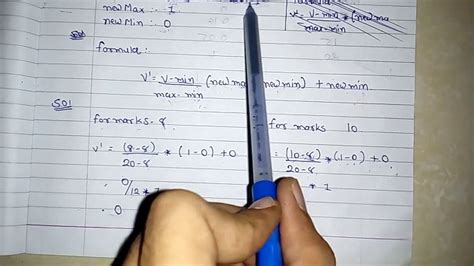 new Max :- 1
new Min :- 0
formula
v' = v-min * (new ma
max-min
formula:
v' = v-min (new ma new min) + new min
max-min
Sol
for marks 8
for marks 10
v' = (8-8) * (1-0) + 0
20-8
= (10-8) * (1-0) + 0
20-8
0/12 * 1
* 1
0